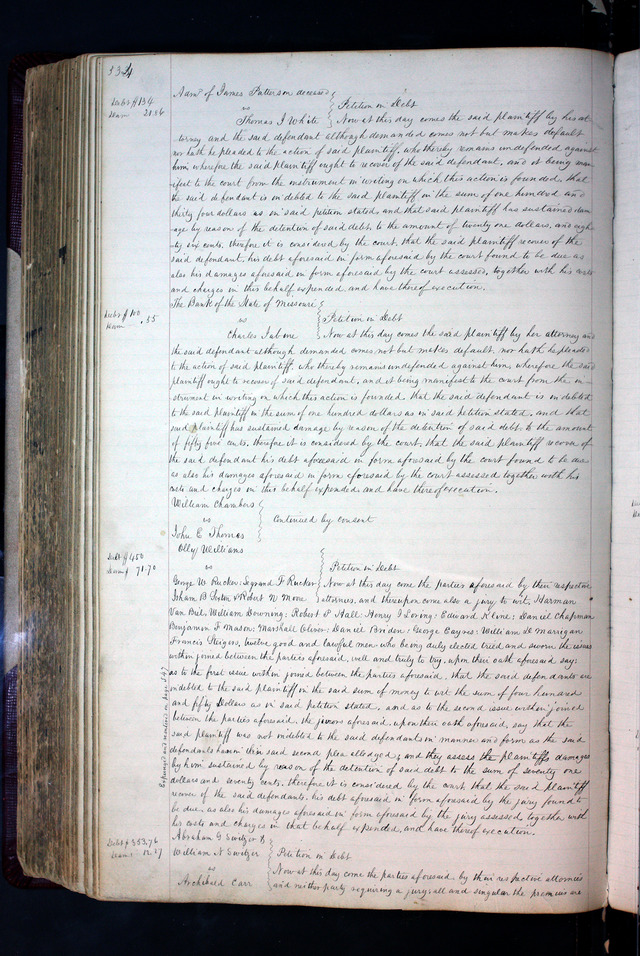 334
Adm.r of James Patterson deceased
Debt $134
Dam 21.86
vs } Petition in Debt
Thomas J White } Now at this day comes the said plaintiff by his at-
torney and the said defendant although demanded comes not but makes default
nor hath he pleaded to the action of said plaintiff, who thereby remains undefended against
him wherefore the said plaintiff ought to recover of the said defendant, and it being man-
ifest to the court from the instrument in writing on which this action is founded, that
the said defendant is indebted to the said plaintiff in the sum of one hundred and
thirty four dollars as in said petition stated, and that said plaintiff has sustained dam-
age by reason of the detention of said debt, to the amount of twenty one dollars, and eigh-
ty six cents, therefore it is considered by the court, that the said plaintiff recover of the
said defendant, his debt aforesaid in form aforesaid by the court found to be due as
also his damages aforesaid in form aforesaid by the court assessed, together with his costs
and charges in this behalf expended, and have thereof execution.
The Bank of the State of Missouri
Debt $100
Dam .55
vs } Petition in Debt
Charles } Now at this day comes the said plaintiff by her attorney and
the said defendant although demanded comes not but makes default, nor hath he pleaded
to the action of said plaintiff, who thereby remains undefended against him, wherefore the said
plaintiff ought to recover of said defendant, and it being manifest to the court from the in-
strument in writing on which this action is founded, that the said defendant is indebted
to the said plaintiff in the sum of one hundred dollars as in said petition stated, and that
said plaintiff has sustained damage by reason of the detention of said debt, to the amount
of fifty five cents, therefore it is considered by the court, that the said plaintiff recover of
the said defendant his debt aforesaid in form aforesaid by the court found to be due
as also his damages aforesaid in form aforesaid by the court assessed together with his
costs and charges in this behalf expended, and have thereof execution.
William Chambers
vs } Continued by consent
John E Thomas
Olly Williams
Debt $450
Dam $71.70
vs } Petition in Debt
George W Rucker; F Rucker } Now at this day come the parties aforesaid by their respective
Isham B & Robert N Moore } attorneies, and thereupon come also a jury to wit, Harman
Van William Downing; Robert P Hall; Henry J Loring; Edward Kline; Daniel Chapman
Benjamin F Mason; Marshall Oliver; Daniel Briden; George Cayres; William D Marigan
Francis twelve good and lawful men who being duly elected tried and sworn the issues
within joined between the parties aforesaid, well and truly to try, upon their oath aforesaid say;
as to the first issue within joined between the parties aforesaid, that the said defendants are
indebted to the said plaintiff in the said sum of money to wit the sum of four hundred
and fifty Dollars as in said petition stated, and as to the second issue within joined
between the parties aforesaid, the jurors aforesaid, upon their oath aforesaid, say that the
said plaintiff was not indebted to the said defendants in manner and form as the said
defendants have in their said second plea alledged; and they assess the plaintiffs damages
by him sustained by reason of the detention of said debt to the sum of seventy one
dollars and seventy cents, therefore it is considered by the court that the said plaintiff
recover of the said defendants, his debt aforesaid in form aforesaid by the jury found to
be due, as also his damages aforesaid in form aforesaid by the jury assessed together with
his costs and charges in that behalf expended, and have thereof execution.
Expunged and on page 347
Abraham G Switzer &
Debt $353.76
Dam 12.27
William N Switzer } Petition in Debt
vs } Now at this day come the parties aforesaid, by their respective attornies
Archibald Carr } and neither party requiring a jury; all and singular the premises are